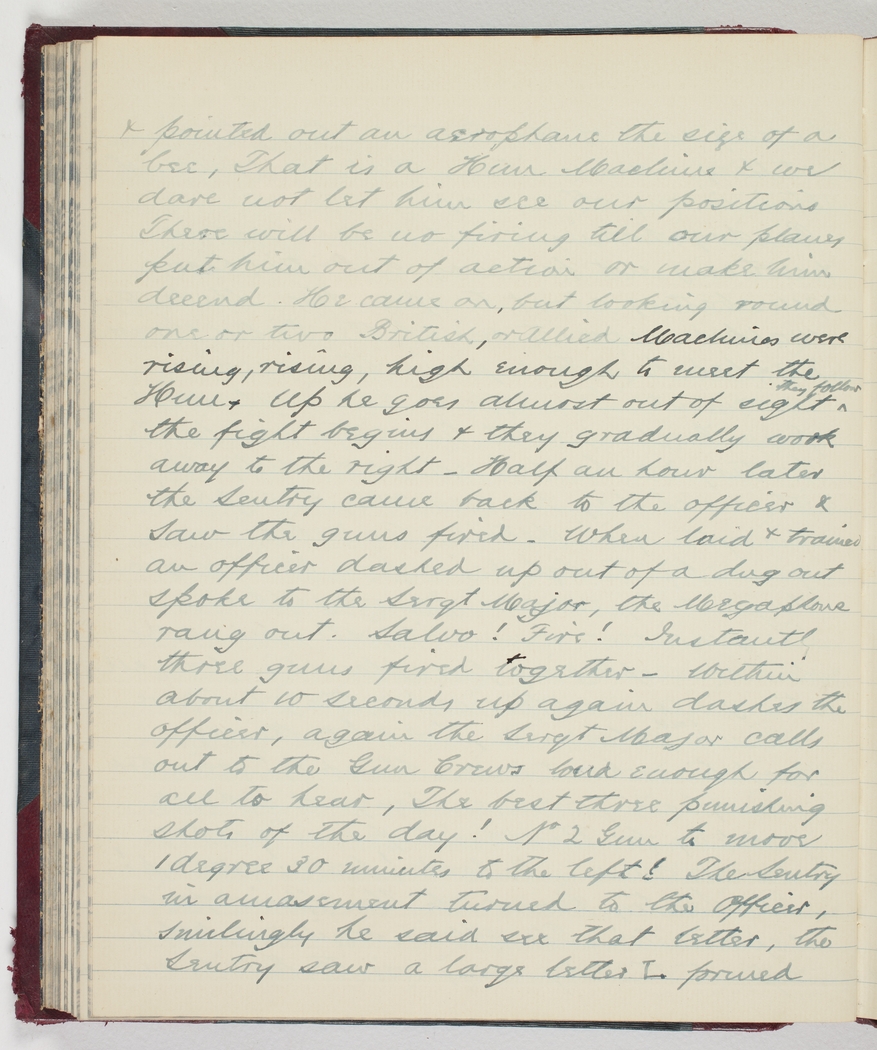 & pointed out an aerophane the size of a
bee, That is a Hun Machine & we
dare not let him see our positions
There will be no firing till our planes
put him out of action or make him
decend. He came on, but looking round
one or two British, or Allied Machines were
rising, rising, high enough to meet the
Hun, Up he goes almost out of sight ^ they follow
the fight begins & they gradually work
away to the right - Half an hour later
the Sentry came back to the officer &
saw the guns fired - When laid & trained
an officer dashed up out of a dug out
spoke to the Sergt Major, the Megaphone
rang out. Salvo! Fire! Instantl
three guns fired together - Within
about 10 seconds up again dashes the
officer, again the Sergt Major calls
out to the Gun Crews loud enough for
all to hear, The best three punishing
shots of the day! No 2 Gun to move
1 degree 30 minutes to the left! The Sentry
in amasement turned to the Officer,
smilingly he said see that letter, the
Sentry saw a large letter T. prined